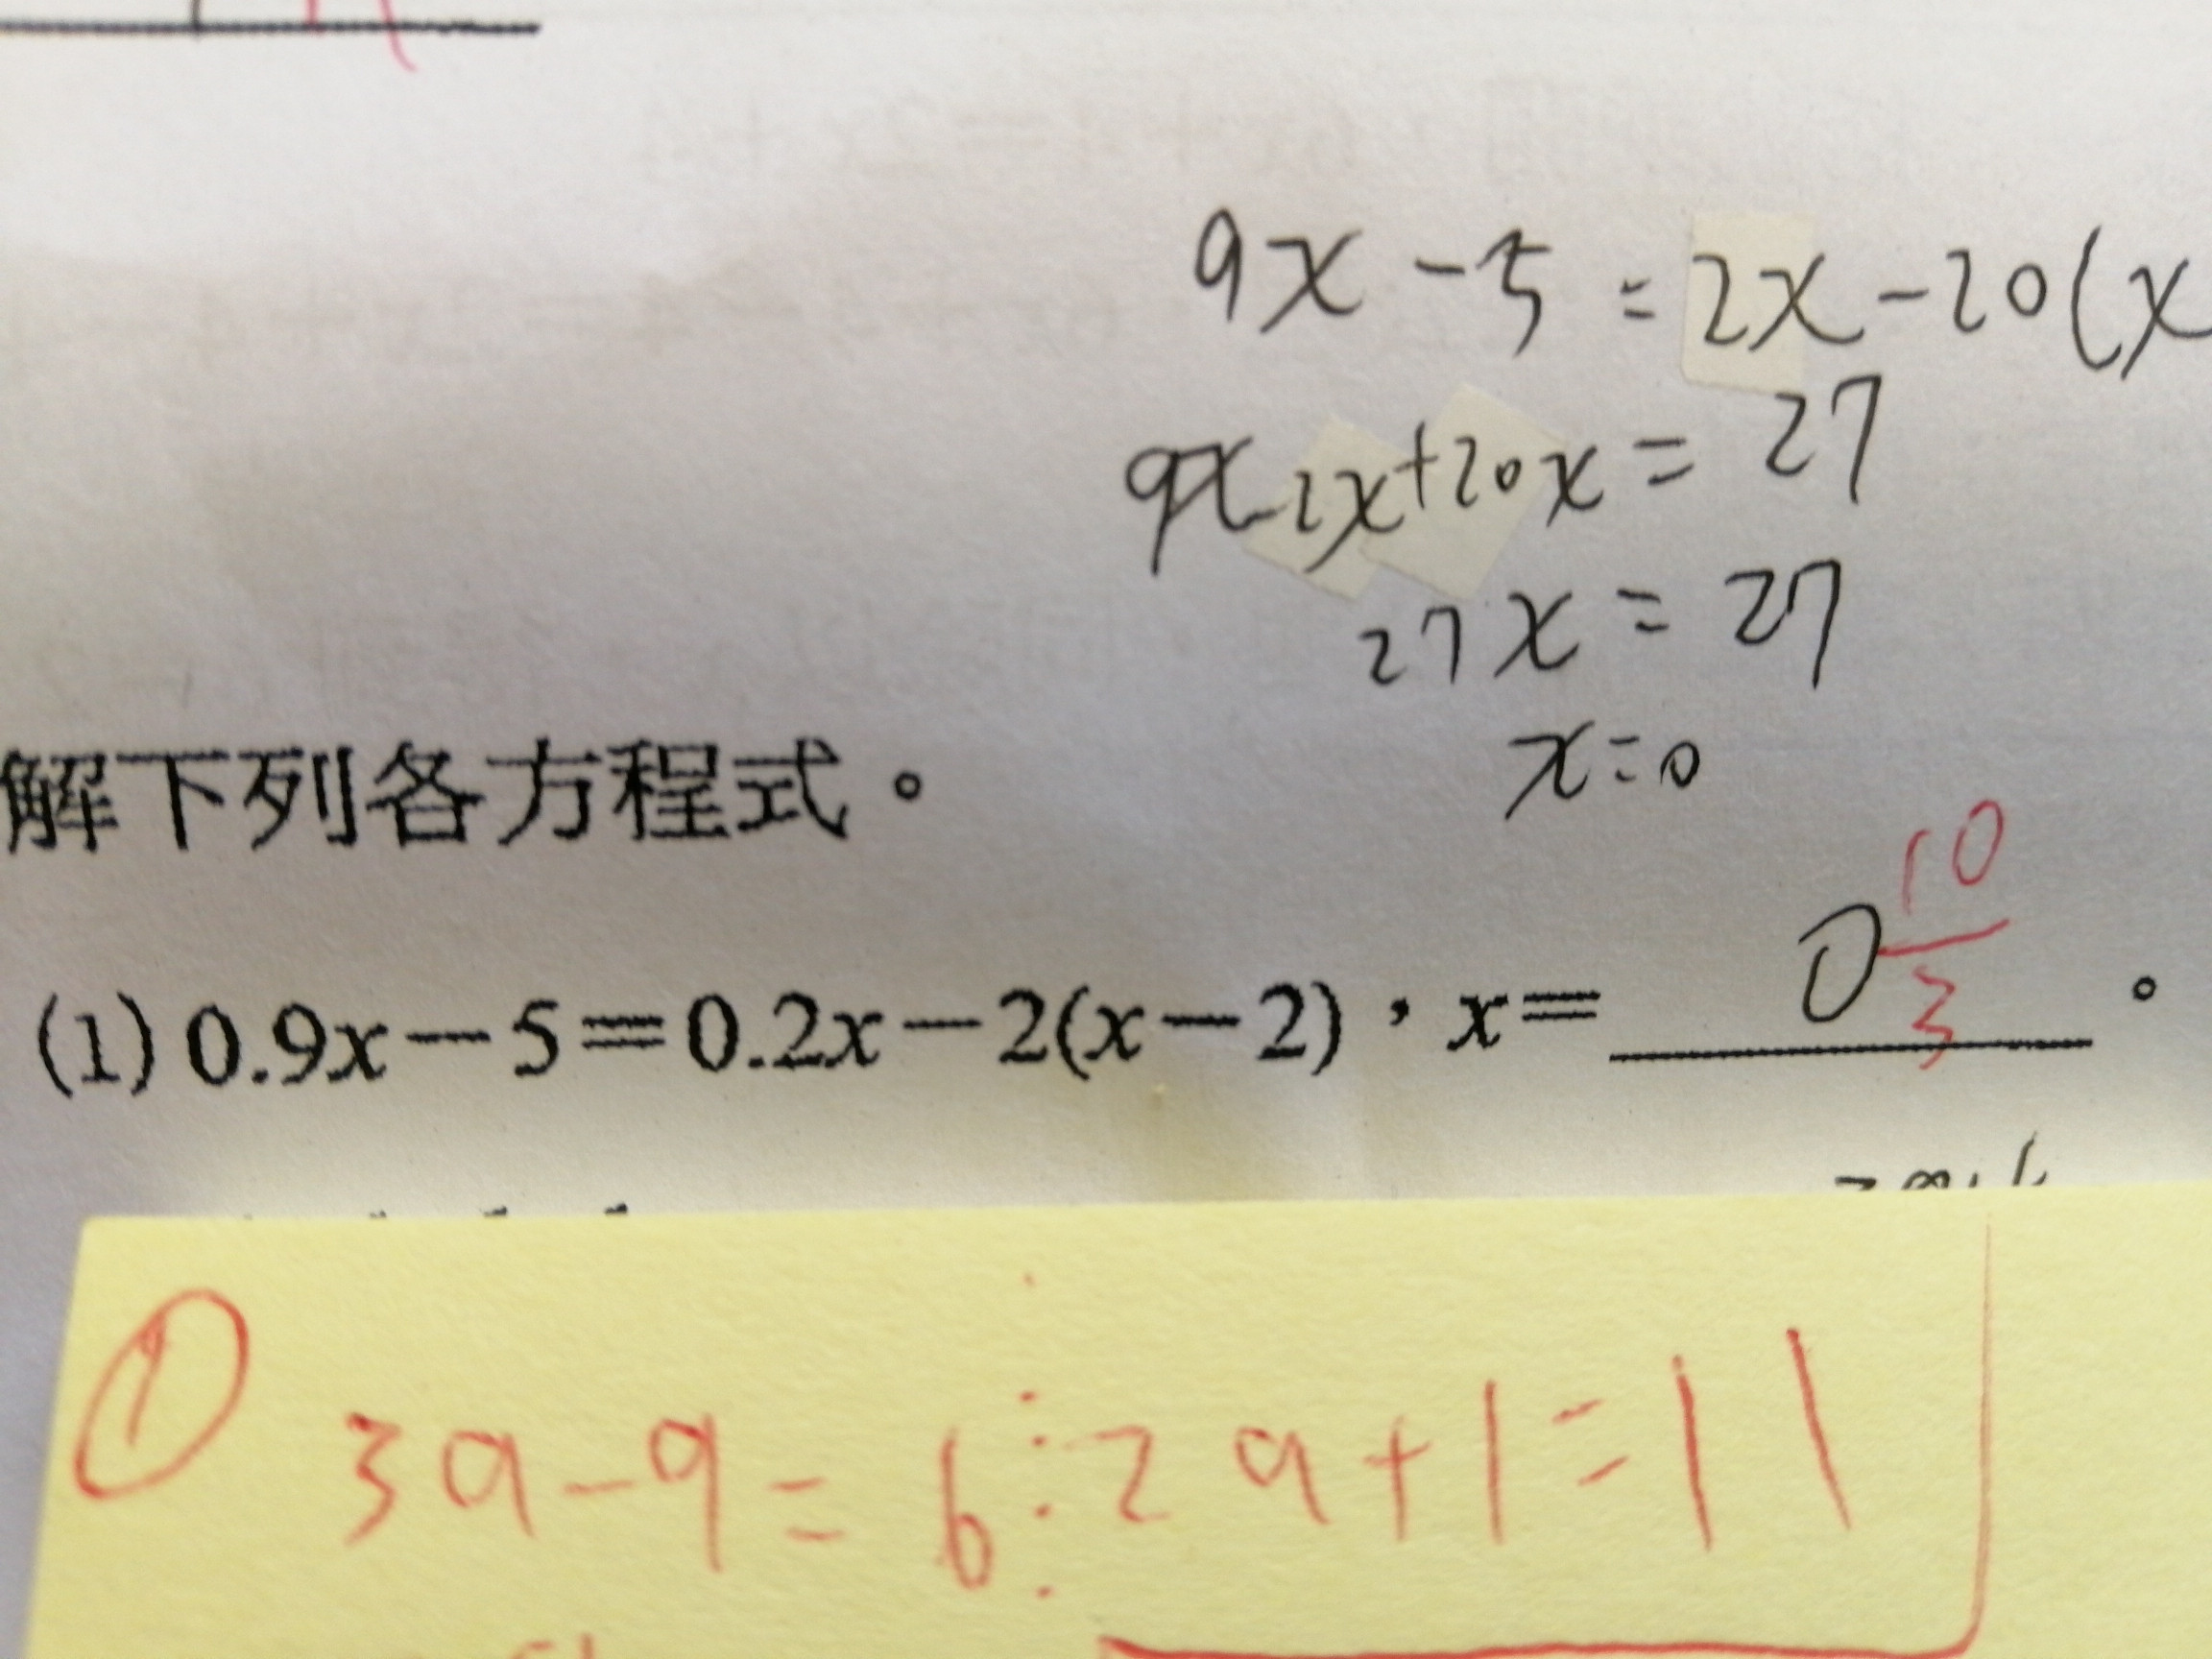 9x-5=2x-20(x
9x-2x+20x=27
27x=27
x=0
解下列各方程式。
10
(1) 0.9x-5=0.2x-2(x-2),x= 0 。
3
① 3a-9=6 2a+1=11